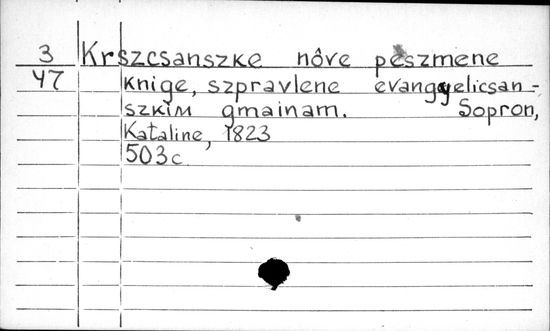 3 Krszcsanszke nôve peszmene
47 knige, szpravlene evangyelicsan-
szkim gmainam. Sopron,
Kataline, 1823
503c